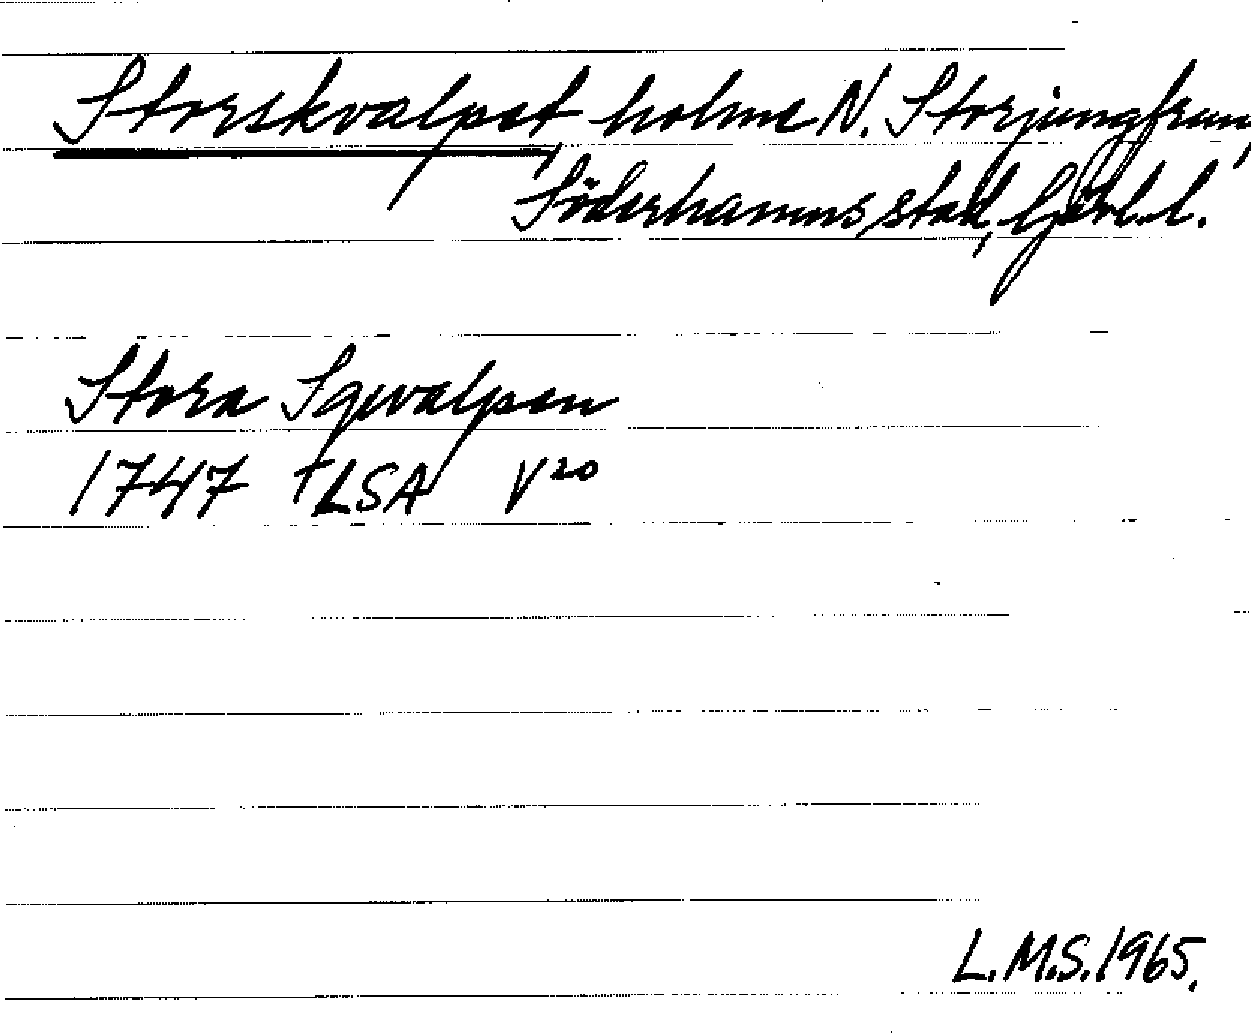 Storskvalpet, holme N. Storjungfrun,
Söderhamns stad, Gävl.l.
Stora Sqvalpen
1747 †LSA V²⁰
L.M.S. 1965.